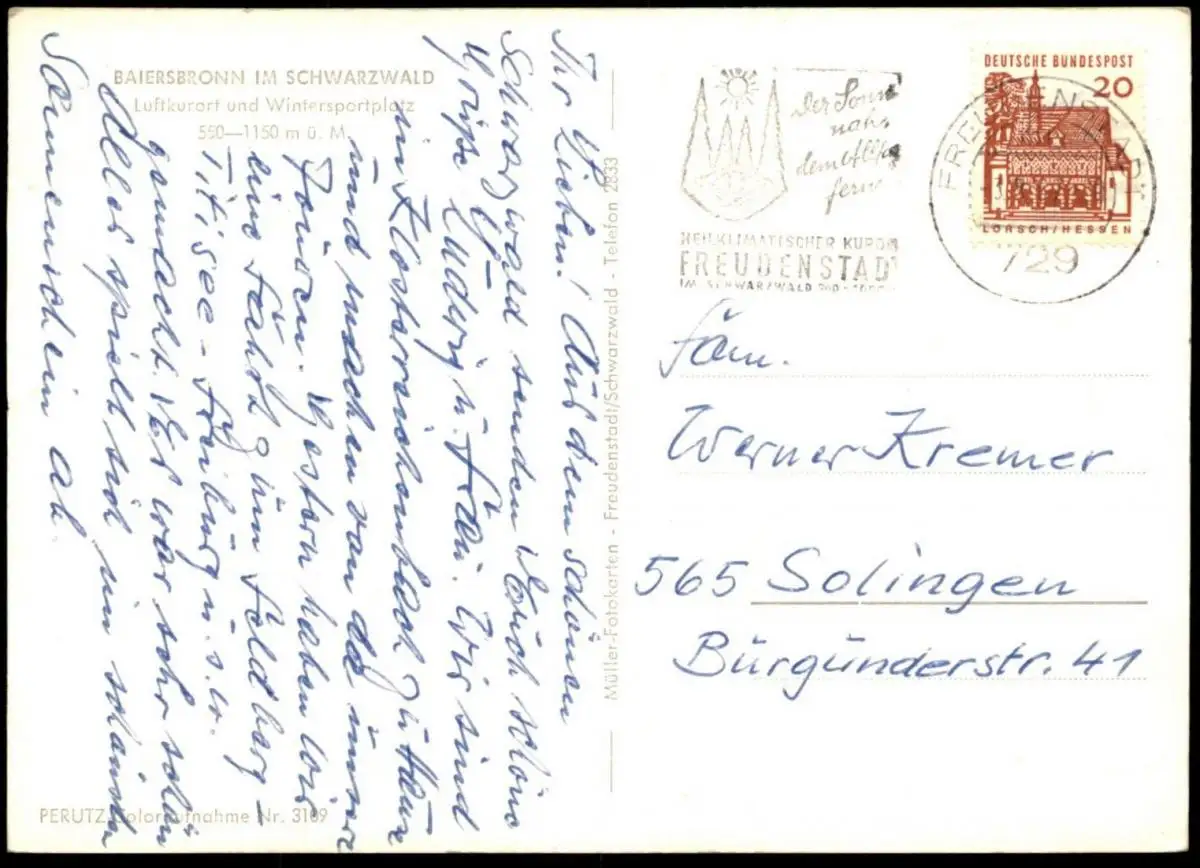 BAIERSBRONN IM SCHWARZWALD
Luftkurort und Wintersportplatz
550—1150 m ü. M.
Ihr Lieben! Aus dem schönen
Schwarzwald senden Euch schöne
Grüße Ludwig u. Wir sind
in Klosterreichenbach zu Hause
und machen von da unsere
Touren. Gestern haben wir
eine Fahrt zum Feldberg-
Titisee-Freiburg u.s.w.
gemacht. Es war sehr schön
Alles spielt sich im schönsten
Sonnenschein ab.
PERUTZ-Coloraufnahme Nr. 3109
Müller-Fotokarten - Freudenstadt/Schwarzwald - Telefon 2833
Der Sonne
nah,
dem Alltag
fern
HEILKLIMATISCHER KURORT
FREUDENSTADT
IM SCHWARZWALD
FREUDENSTADT
729
DEUTSCHE BUNDESPOST
20
LORSCH/HESSEN
Fam.
Werner Kremer
565 Solingen
Burgunderstr. 41